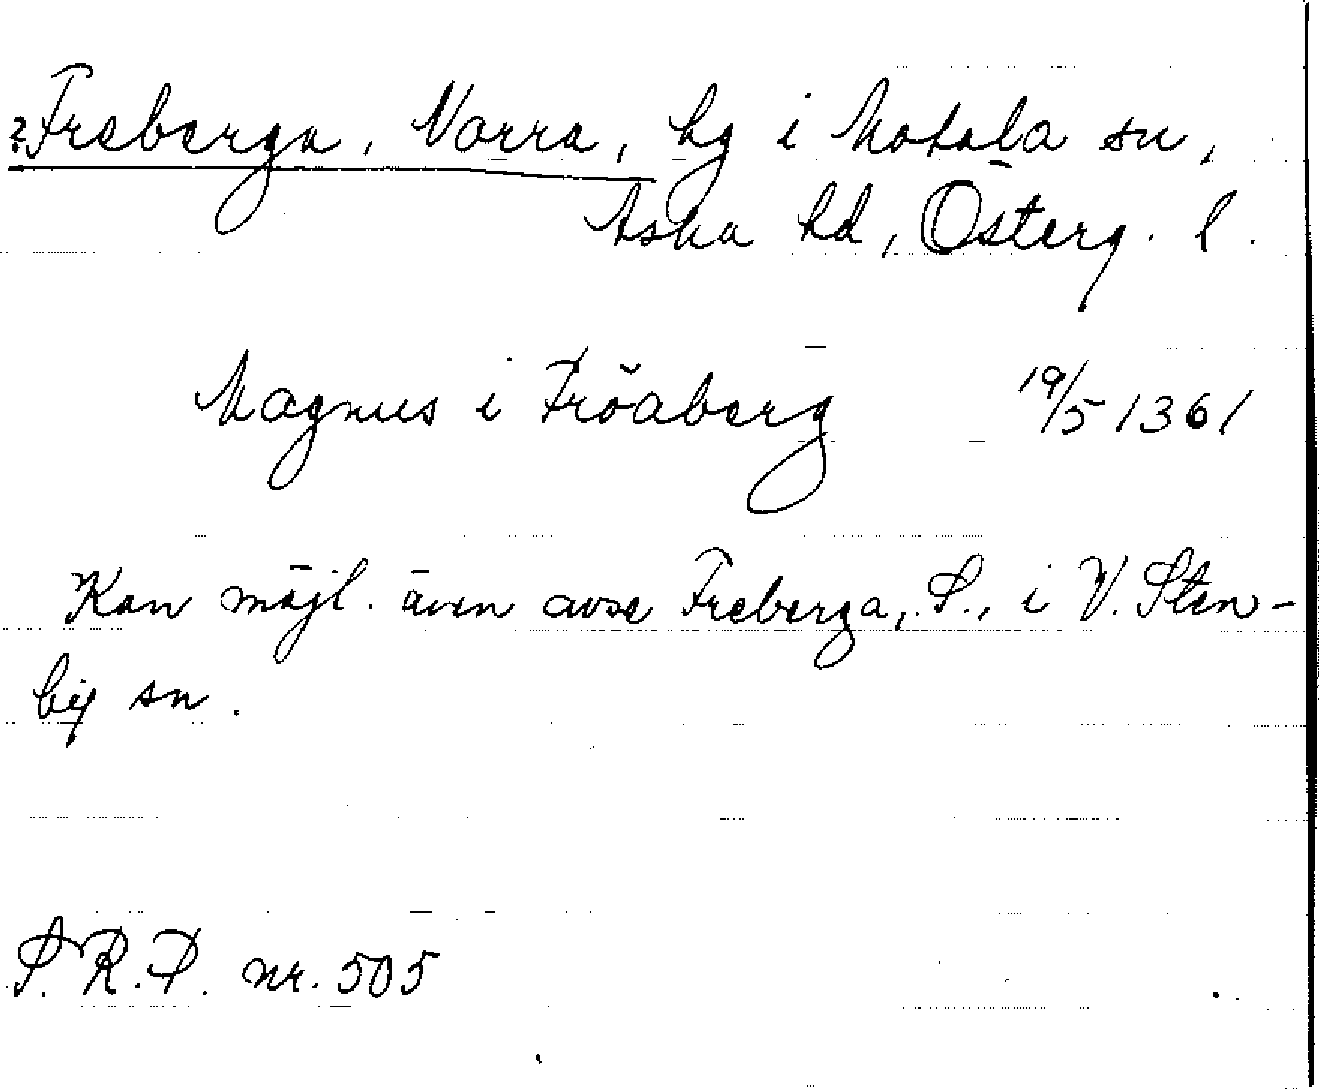 ?Freberga, Norra, hg i Motala sn,
Aska hd, Österg. l.
Magnus i Fröaberg 19/5 1361
Kan möjl. även avse Freberga, S., i V. Sten-
by sn.
S.R.P. nr. 505